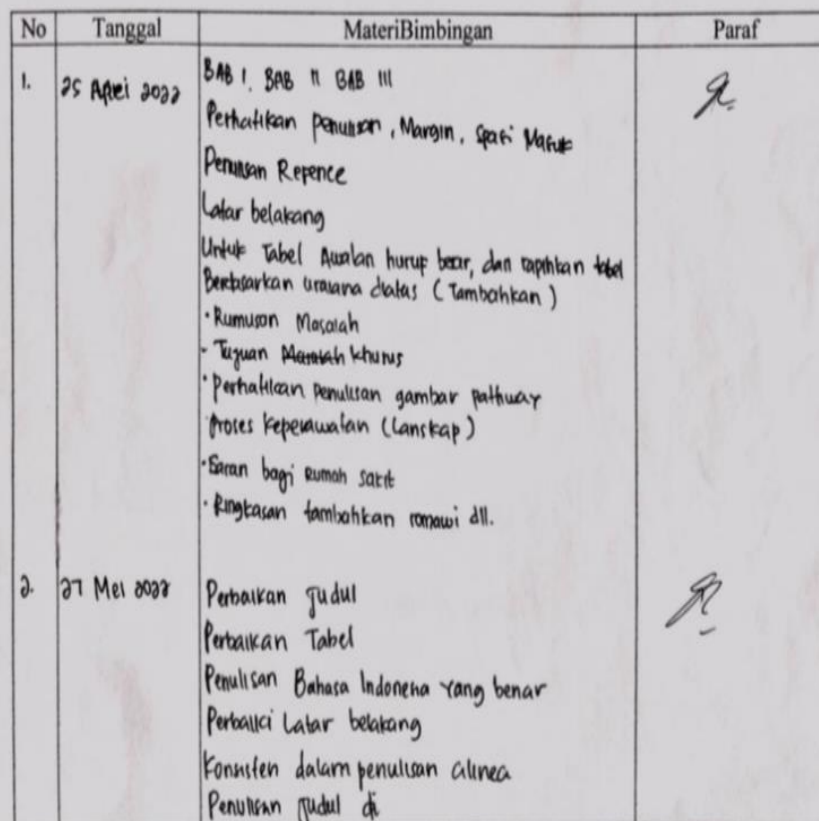 No Tanggal MateriBimbingan Paraf
1. 25 April 2022 BAB I, BAB II BAB III
Perhatikan penulisan, Margin, spasi Masuk
Penulisan Repence
Latar belakang
Untuk Tabel Awalan hurup besar, dan rapihkan tabel
Berdasarkan uraiana diatas (Tambahkan)
• Rumusan Masalah
- Tujuan Masalah khusus
• Perhatikan penulisan gambar pathway
Proses keperawatan (Lanskap)
• Saran bagi Rumah sakit
• Ringkasan tambahkan romawi dll.
2. 27 Mei 2022 Perbaikan Judul
Perbaikan Tabel
Penulisan Bahasa Indonesia Yang benar
Perbaiki Latar belakang
Konsisten dalam penulisan alinea
Penulisan Judul di